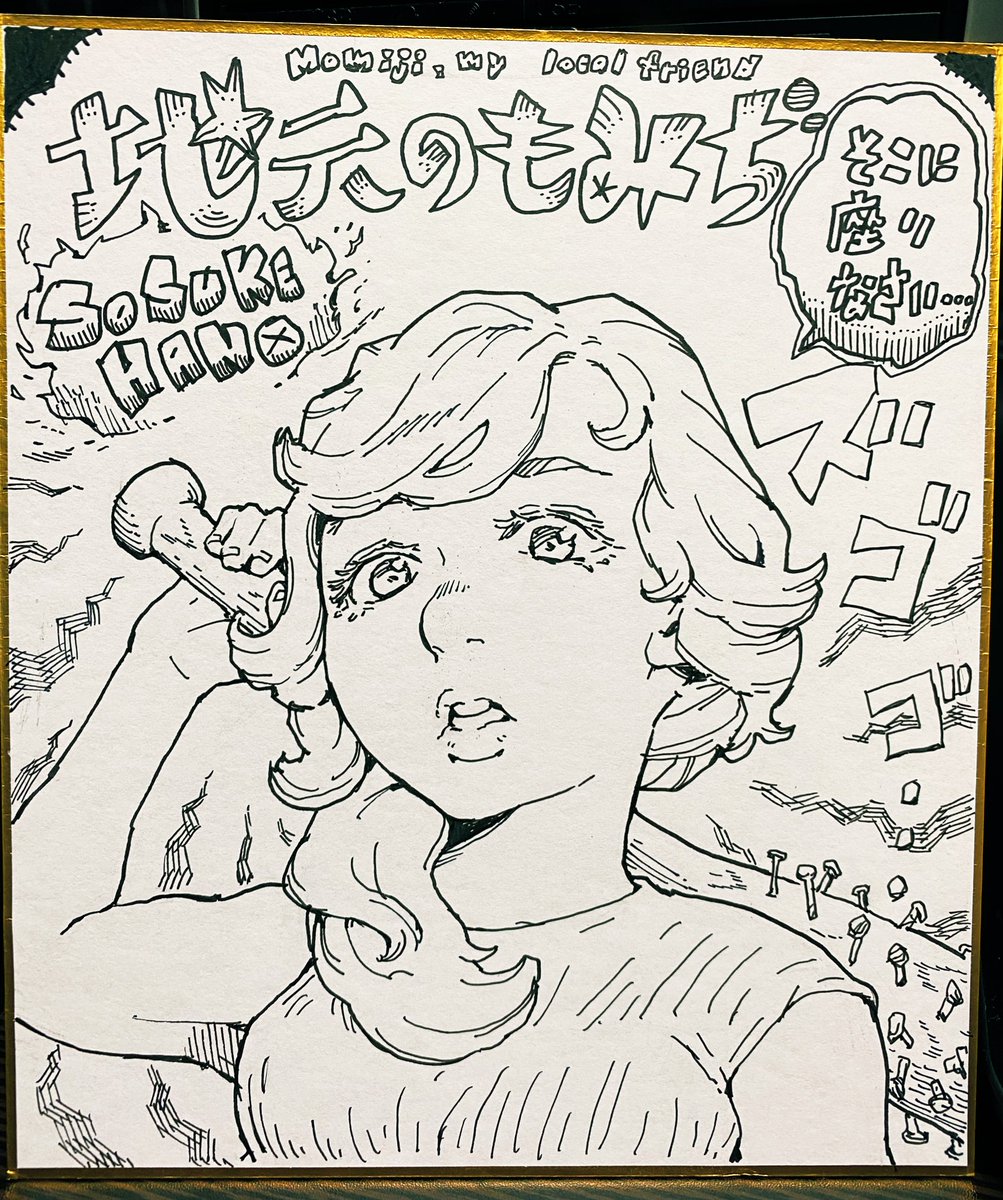 Momiji, my local friend
地元のもみぢ
そこに
座り
なさい…
SOSUKE
HANO
ズゴゴ…